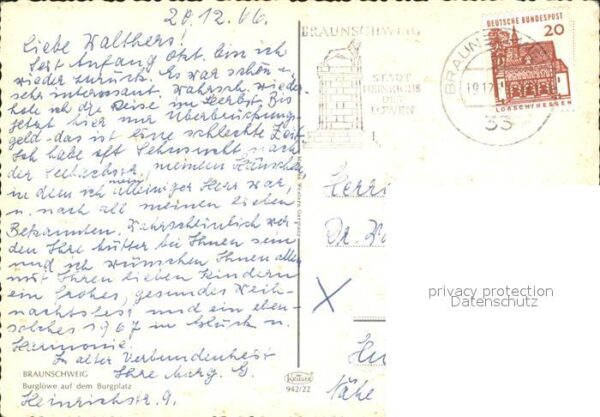 20.12.66.
Liebe Walthers!
Seit Anfang Okt. bin ich
wieder zurück. Es war schön u.
sehr interessant. Wahrsch. wieder-
hole ich die Reise im Herbst. Bis
jetzt hier nur Überbrückungs-
geld - das ist eine schlechte Zeit.
Ich habe oft Sehnsucht nach
der meinem Häuschen,
in dem ich mein alleiniger Herr war,
u. nach all meinen lieben
Bekannten. Wahrscheinlich wer-
den Ihre Mutter bei Ihnen sein
und ich wünschen Ihnen allen
mit Ihren lieben Kindern
ein frohes, gesundes Weih-
nachtsfest und ein eben-
solches 1967 in Glück u.
Harmonie.
In alter Verbundenheit
Ihre Marg. G.
BRAUNSCHWEIG
Burglöwe auf dem Burgplatz
Heinrichstr. 9.
Krüger
942/22
BRAUNSCHWEIG
STADT
HEINRICHS
DES
LÖWEN
BRAUNS
19.12
33
DEUTSCHE BUNDESPOST
20
LORSCH/HESSEN
Herrn
Dr.
X
Nähe
privacy protection
Datenschutz